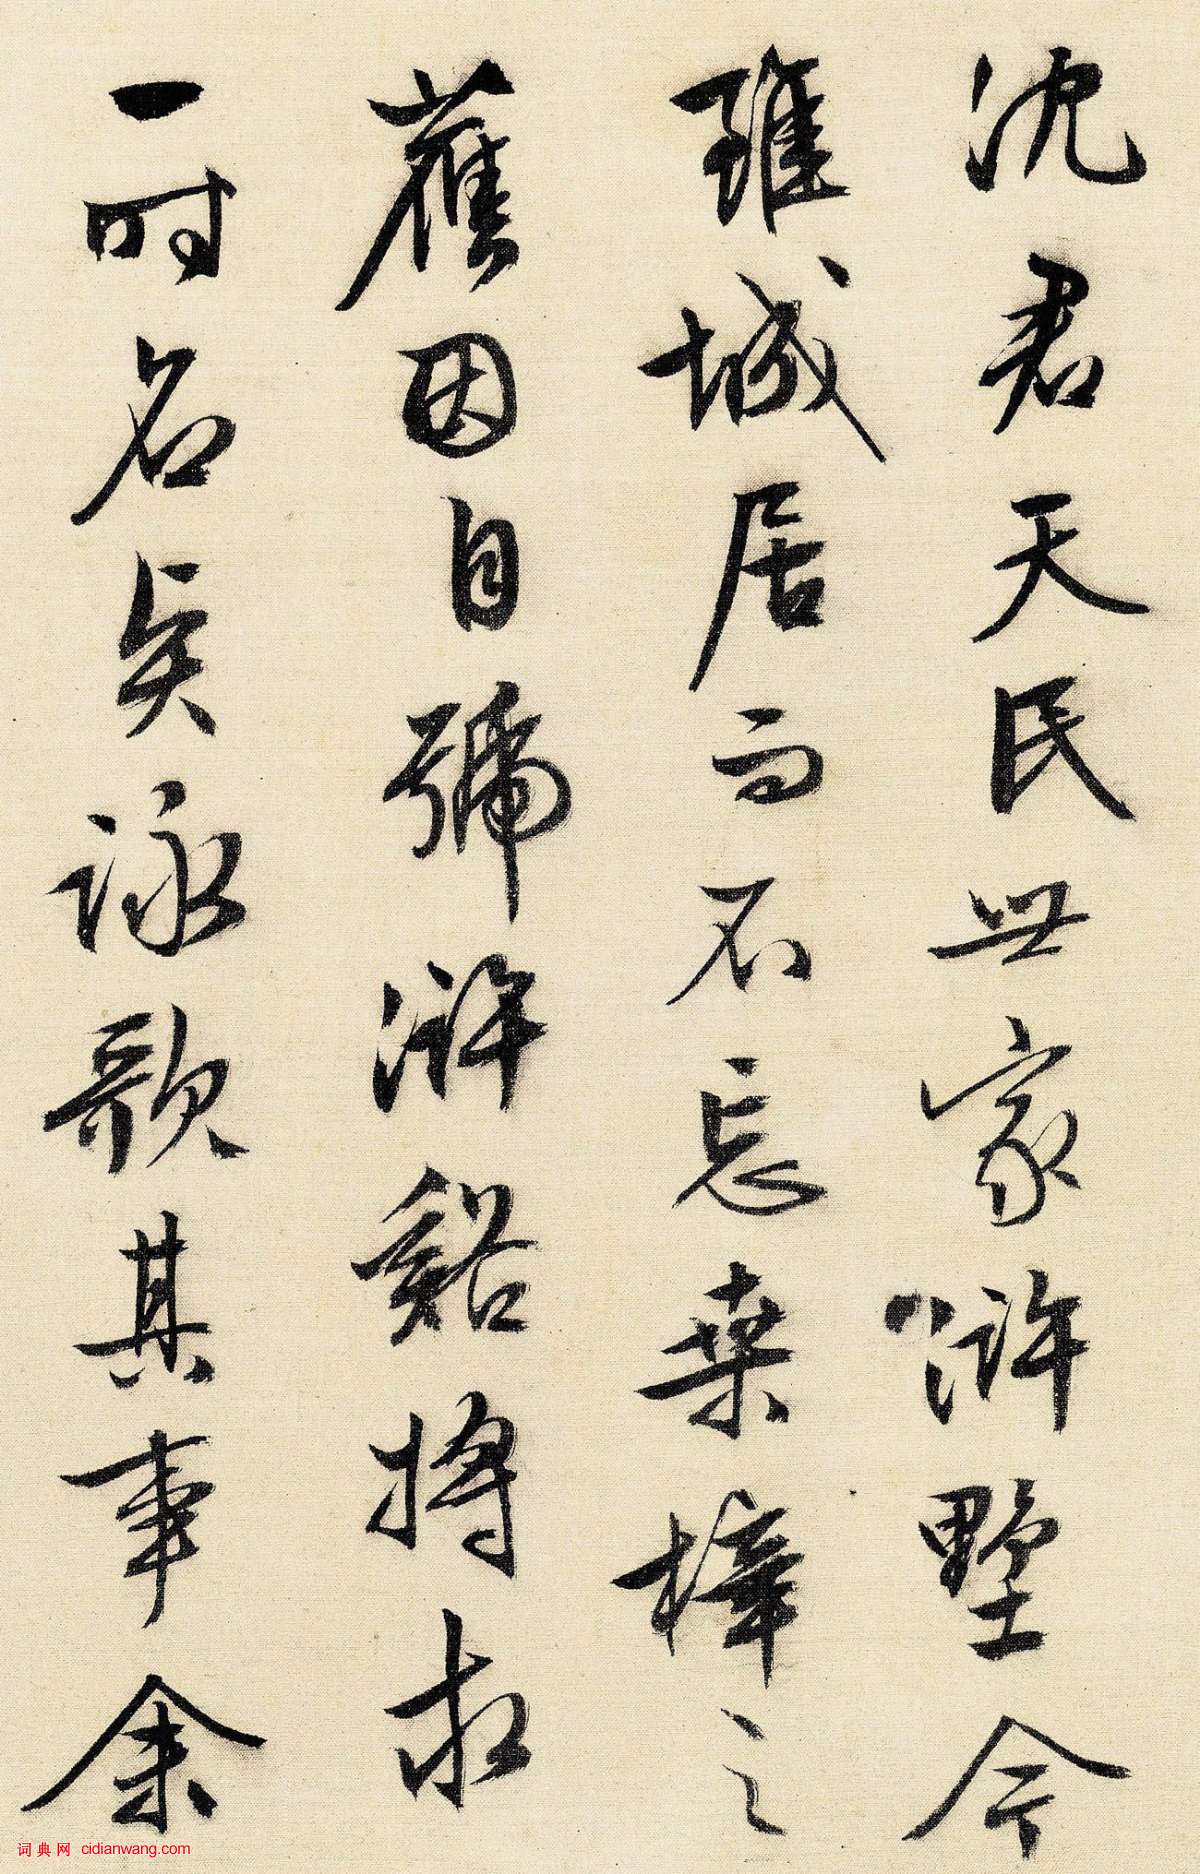 沈君天民世家滸墅今
雖城居而不忘桑梓之
舊因自號滸谿將求
一時名筆詠歌其事余
词典网 cidianwang.com